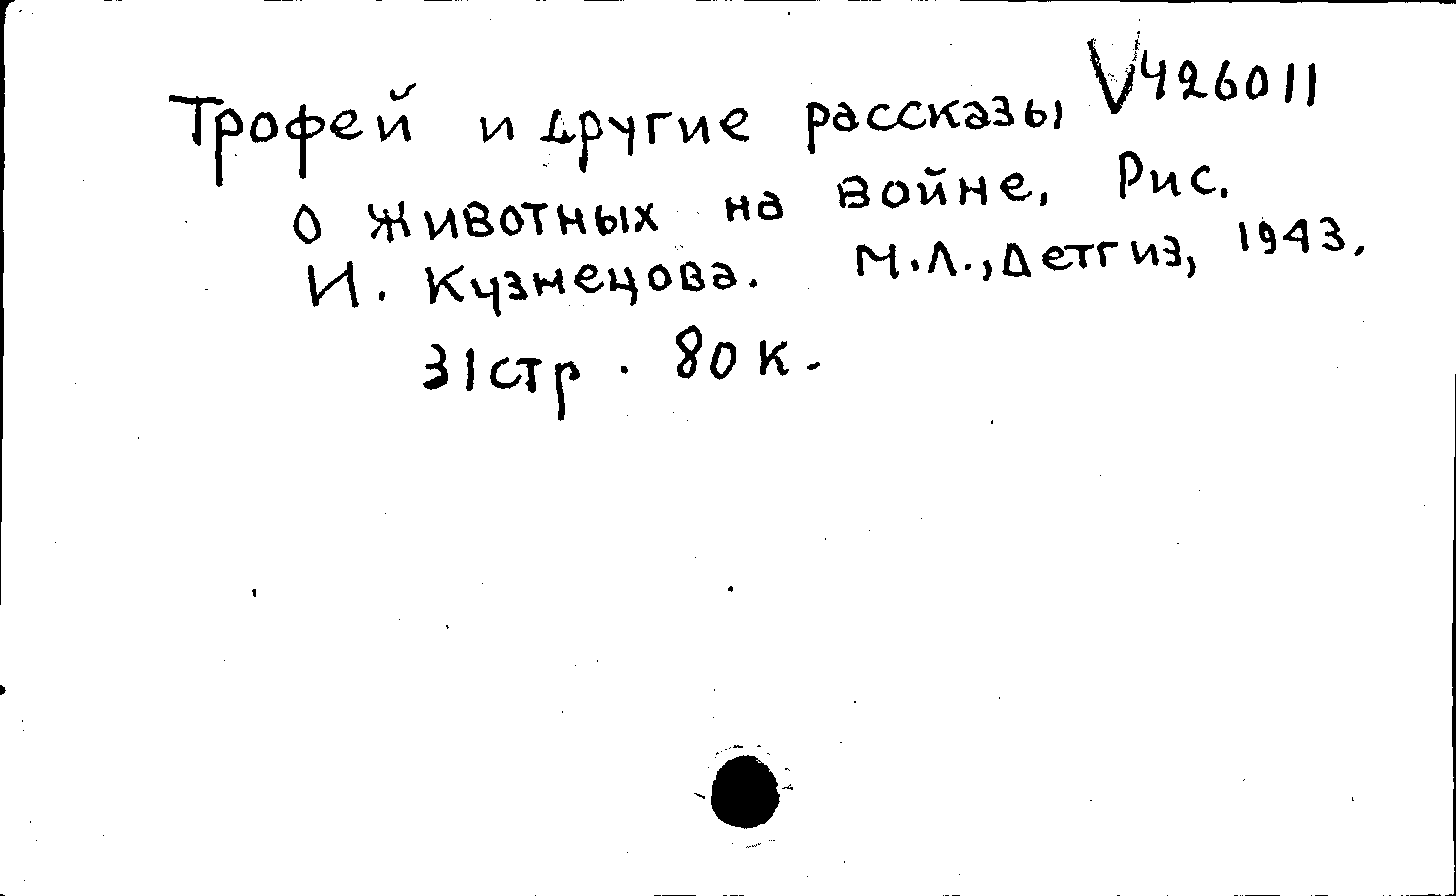 Трофей и другие рассказы V426011
о животных на войне, Рис.
И. Кузнецова. М.Л., Детгиз, 1943.
31стр. 80к.